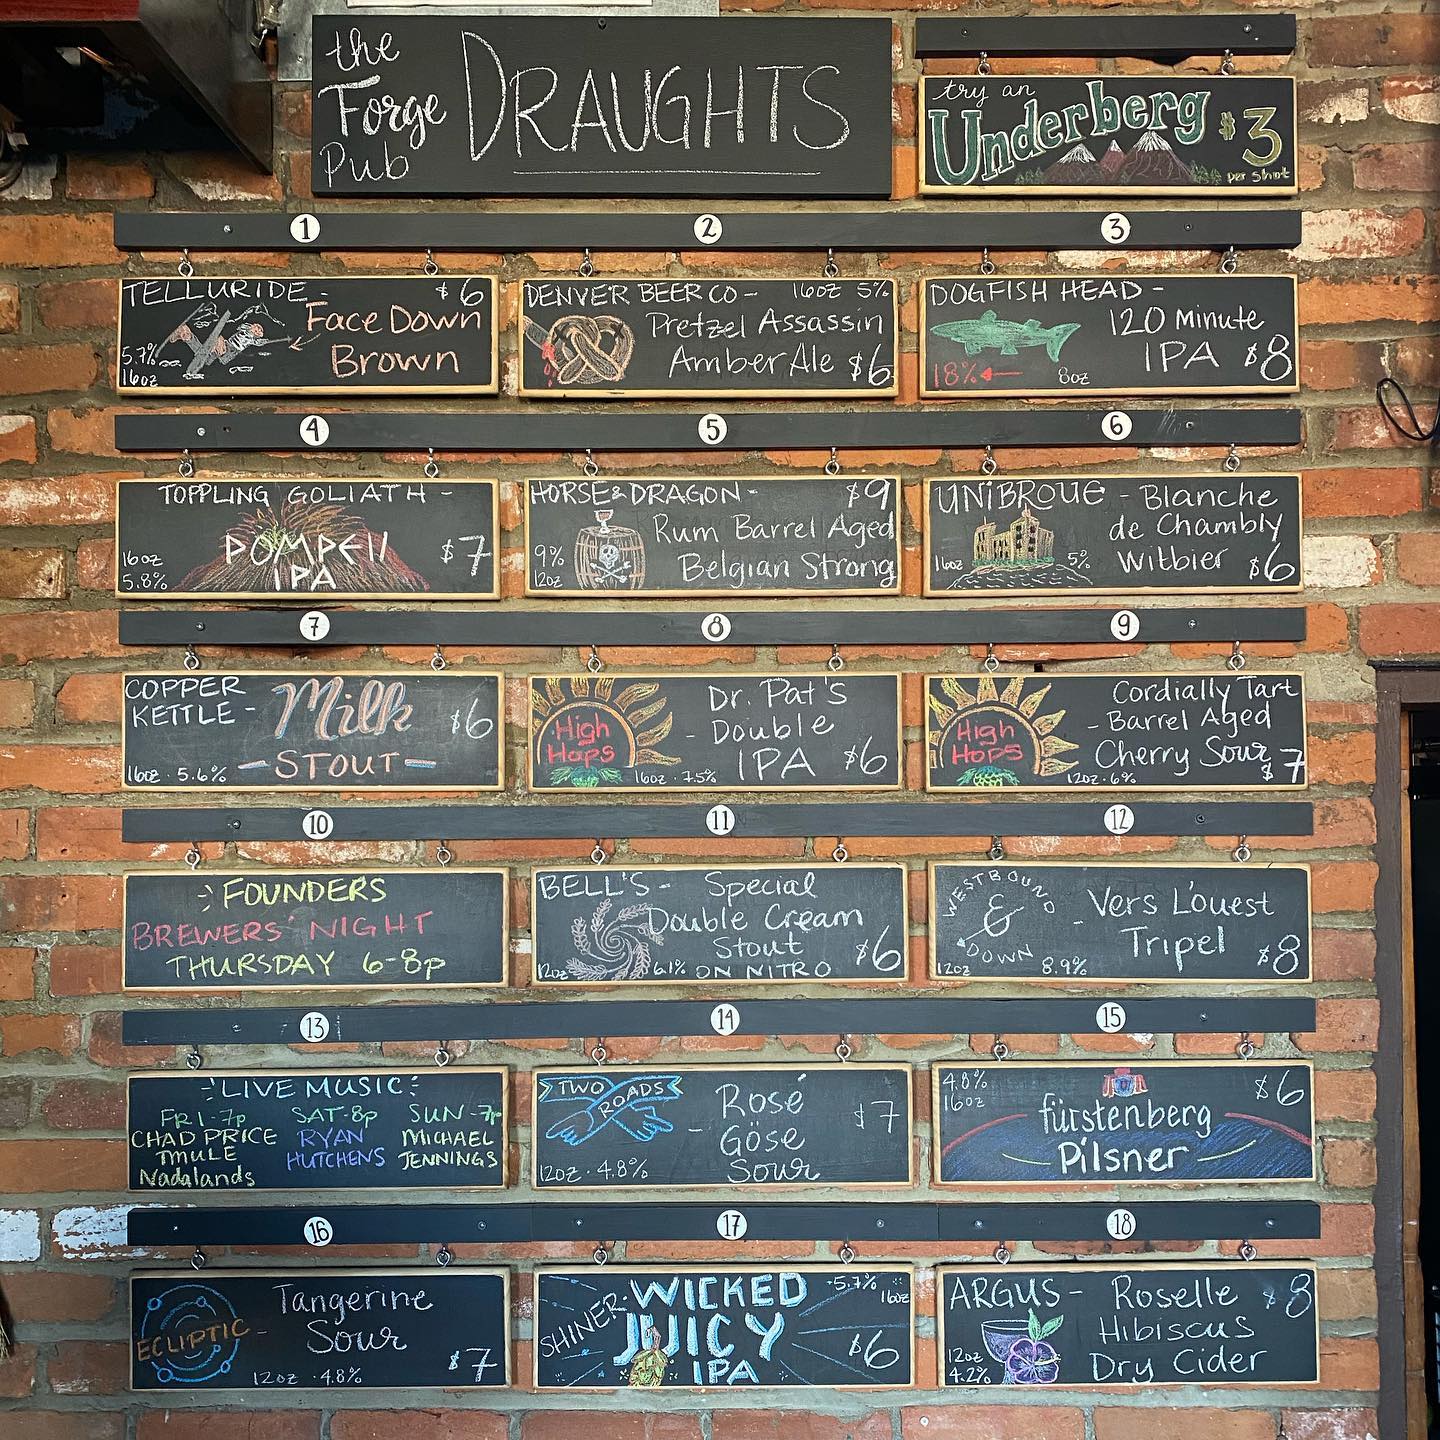 the
Forge
Pub
DRAUGHTS
try an
Underberg
$3
per shot
1
2
3
TELLURIDE -
$6
Face Down
Brown
5.7%
16oz
DENVER BEER CO -
16oz 5%
Pretzel Assassin
Amber Ale $6
DOGFISH HEAD -
120 Minute
IPA $8
18%
8oz
4
5
6
TOPPLING GOLIATH -
POMPEII
IPA
$7
16oz
5.8%
HORSE & DRAGON -
$9
Rum Barrel Aged
Belgian Strong
9%
12oz
UNIBROUE - Blanche
de Chambly
Witbier $6
16oz
5%
7
8
9
COPPER
KETTLE -
Milk
- STOUT -
$6
16oz · 5.6%
High
Hops
- Dr. Pat's
Double
IPA $6
16oz · 7.5%
High
Hops
Cordially Tart
- Barrel Aged
Cherry Sour
$7
12oz · 6%
10
11
12
FOUNDERS
BREWERS' NIGHT
THURSDAY 6-8p
BELL'S - Special
Double Cream
Stout
ON NITRO
$6
12oz
6.1%
WESTBOUND
&
DOWN
- Vers L'ouest
Tripel
$8
12oz 8.9%
13
14
15
LIVE MUSIC
FRI-7p
CHAD PRICE
TMULE
Nadalands
SAT-8p
RYAN
HUTCHENS
SUN-7p
MICHAEL
JENNINGS
TWO
ROADS
- Rosé
Göse
Sour
$7
12oz · 4.8%
4.8%
16oz
fürstenberg
Pilsner
$6
16
17
18
ECLIPTIC -
Tangerine
Sour
12oz · 4.8%
$7
SHINER-
WICKED
JUICY
IPA
5.7%
16oz
$6
ARGUS - Roselle
Hibiscus
Dry Cider
$8
12oz
4.2%